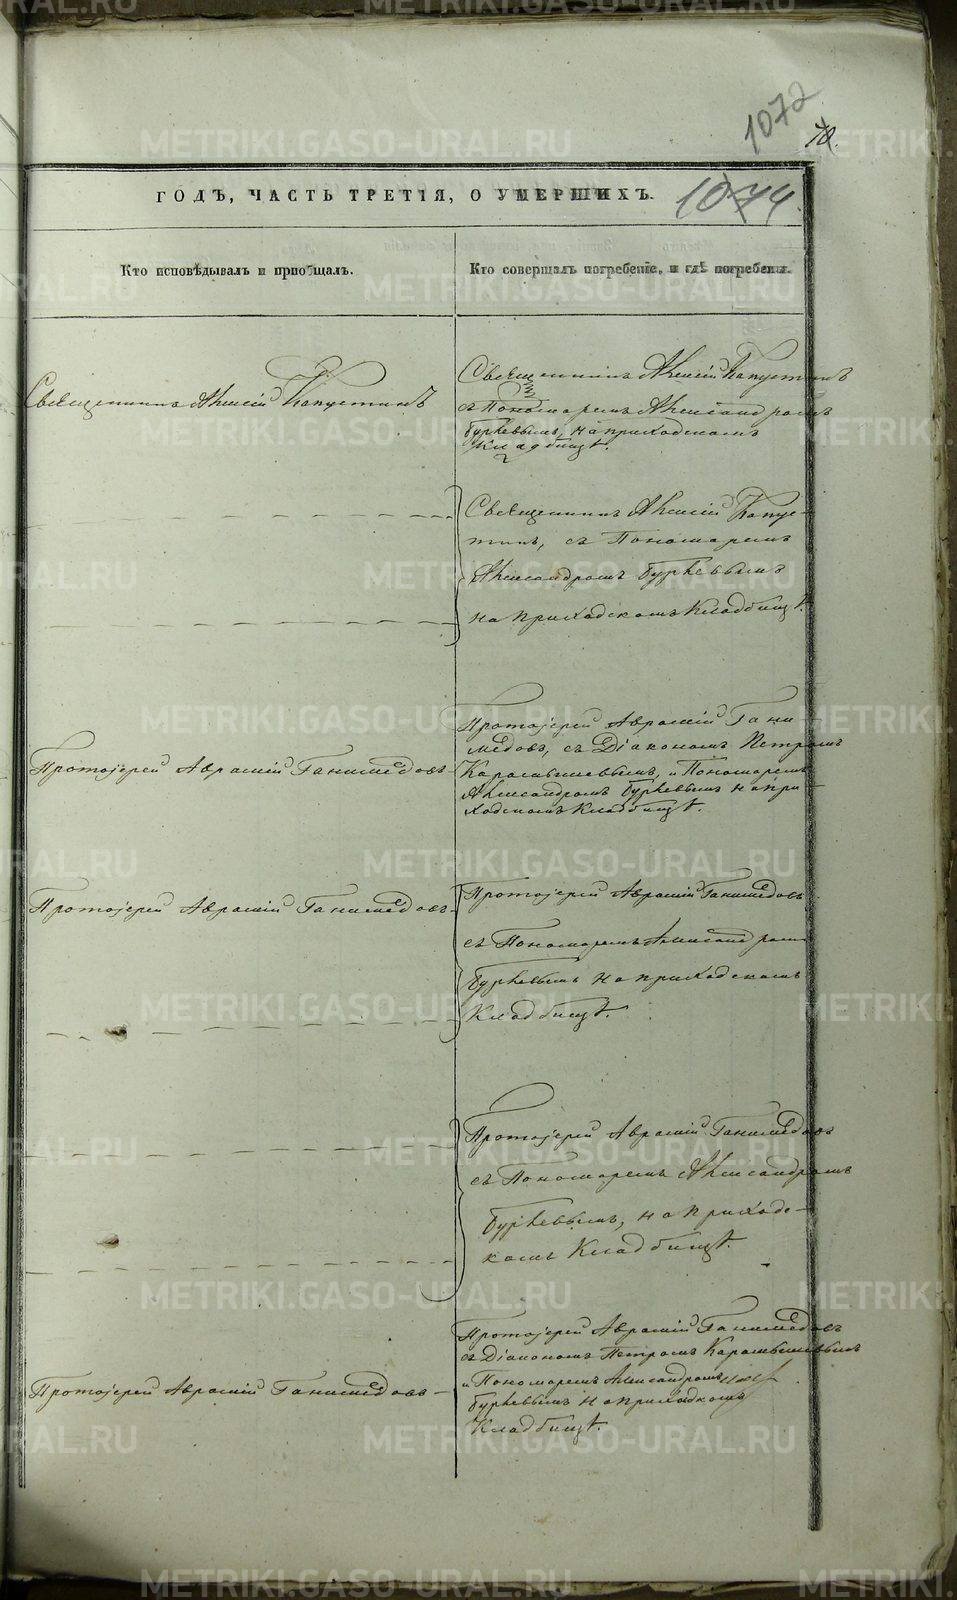 1072
70.
ГОДЪ, ЧАСТЬ ТРЕТІЯ, О УМЕРШИХЪ.
1074
Кто исповѣдывалъ и пріобщалъ.
Кто совершалъ погребеніе, и гдѣ погребены.
Священникъ Алексій Капустинъ
Священникъ Алексій Капустинъ
съ Пономаремъ Александромъ
на приходскомъ
Кладбищѣ.
Священникъ Алексій Капус-
тинъ, съ Пономаремъ
Александромъ
на приходскомъ Кладбищѣ.
Протоіерей Аврамій Ганимедовъ
Протоіерей Аврамій Гани-
медовъ, съ Діакономъ Петромъ
Карамышевымъ, и Пономаремъ
Александромъ на при-
ходскомъ Кладбищѣ.
Протоіерей Аврамій Ганимедовъ
Протоіерей Аврамій Ганимедовъ
съ Пономаремъ Александромъ
на приходскомъ
Кладбищѣ.
Протоіерей Аврамій Ганимедовъ
съ Пономаремъ Александромъ
на приход-
скомъ Кладбищѣ.
Протоіерей Аврамій Ганимедовъ
Протоіерей Аврамій Ганимедовъ
съ Діакономъ Петромъ Карамышевымъ
и Пономаремъ Александромъ
на приходскомъ
Кладбищѣ.
METRIKI.GASO-URAL.RU